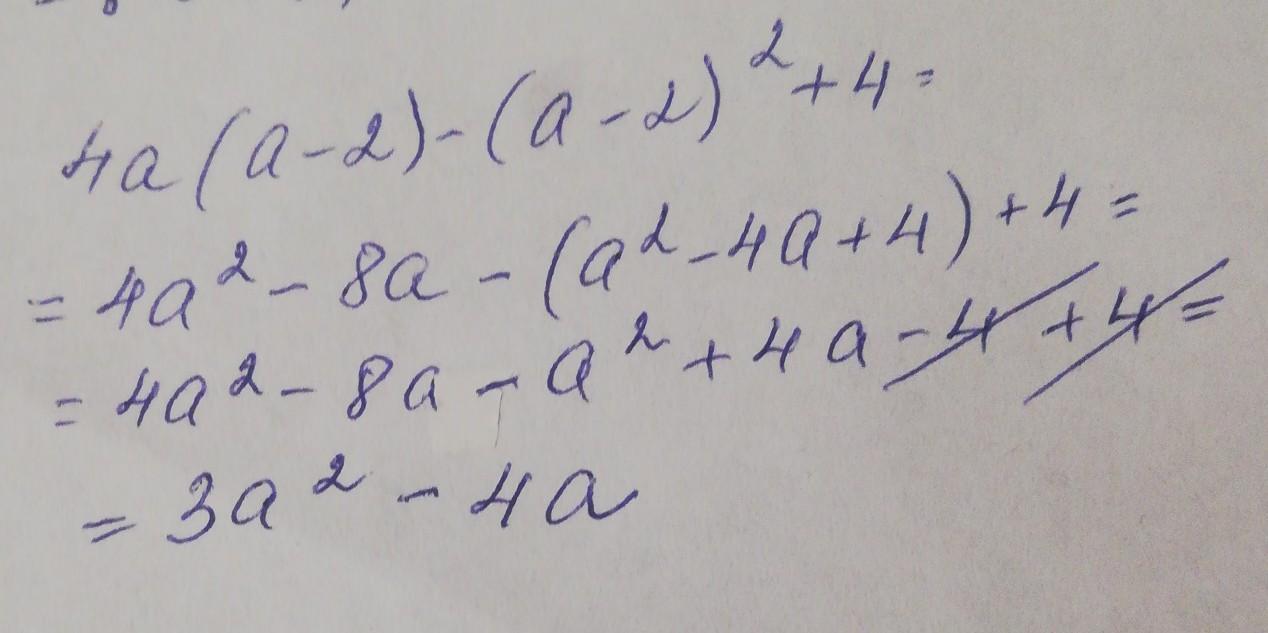 4a(a-2)-(a-2)²+4=
=4a²-8a-(a²-4a+4)+4=
=4a²-8a-a²+4a-4+4=
=3a²-4a